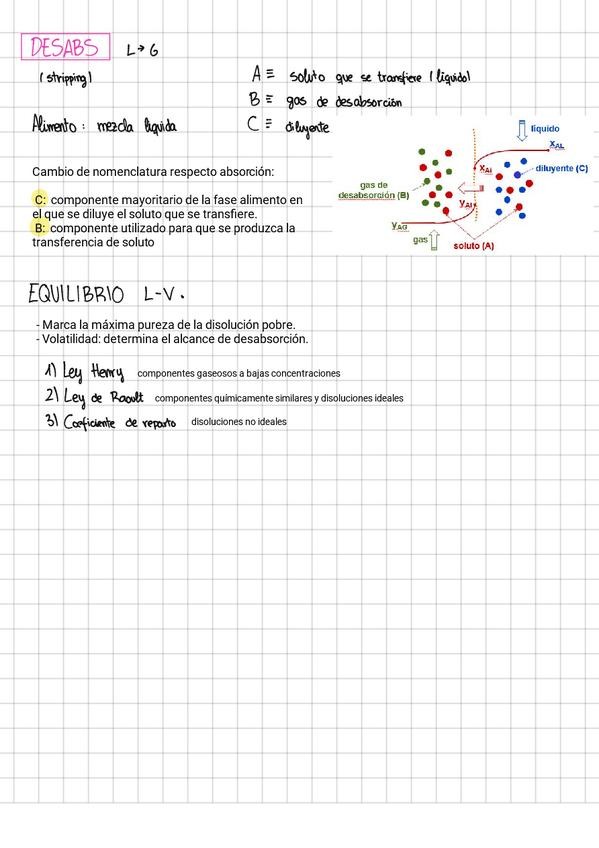 DESABS L→G
(stripping)
A ≡ soluto que se transfiere (líquido)
B ≡ gas de desabsorción
Alimento: mezcla líquida
C ≡ diluyente
líquido
xAL
xAi
diluyente (C)
gas de
desabsorción (B)
yAi
yAG
gas
soluto (A)
Cambio de nomenclatura respecto absorción:
C: componente mayoritario de la fase alimento en
el que se diluye el soluto que se transfiere.
B: componente utilizado para que se produzca la
transferencia de soluto
EQUILIBRIO L-V.
- Marca la máxima pureza de la disolución pobre.
- Volatilidad: determina el alcance de desabsorción.
1) Ley Henry componentes gaseosos a bajas concentraciones
2) Ley de Raoult componentes químicamente similares y disoluciones ideales
3) Coeficiente de reparto disoluciones no ideales